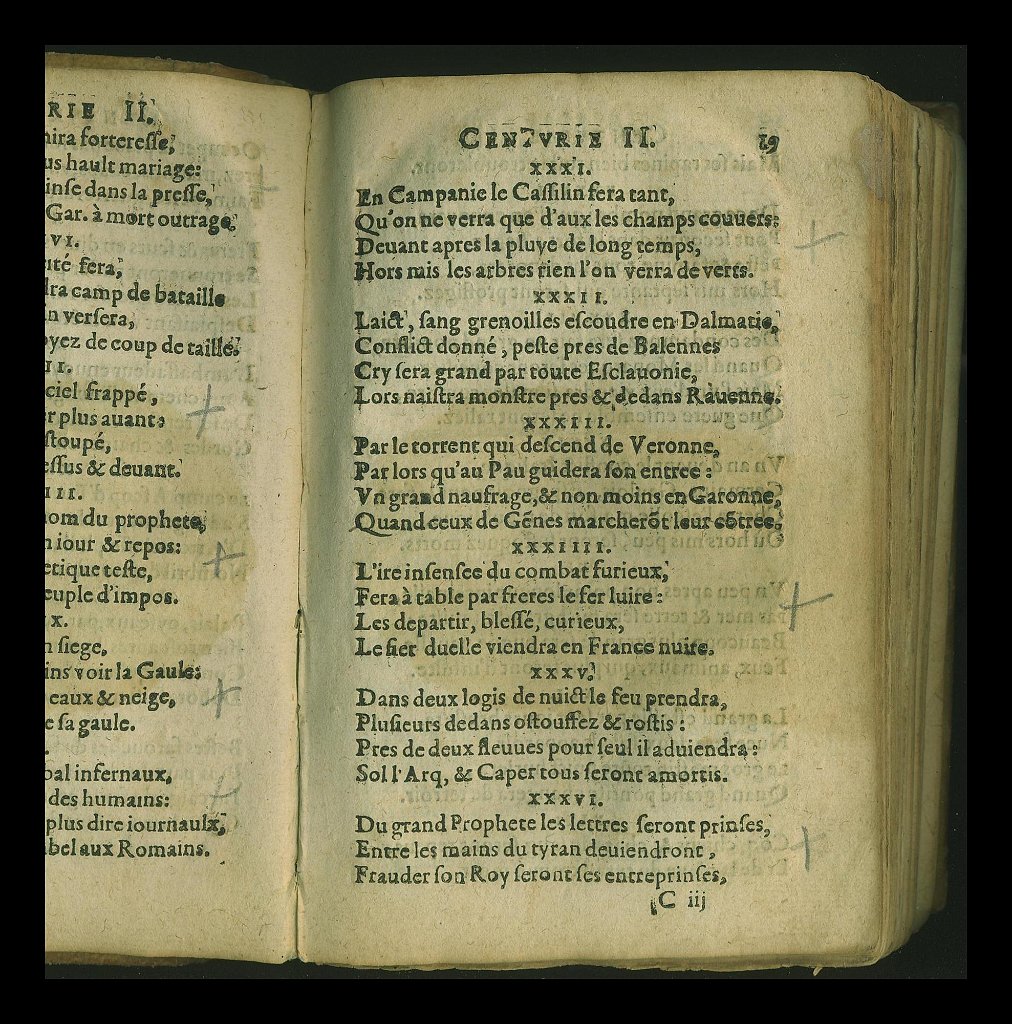 RIE II.
nira forteresse,
us hault mariage:
inse dans la presse,
Gar. à mort outrage.
VI.
ité fera,
dra camp de bataille
n versera,
oyez de coup de taille.
II.
ciel frappé,
er plus auant:
stoupé,
essus & deuant.
III.
nom du prophete,
n iour & repos:
etique teste,
euple d'impos.
X.
n siege,
ins voir la Gaule:
eaux & neige,
e sa gaule.
.
bal infernaux,
des humains:
plus dire iournaulx,
abel aux Romains.
CENTVRIE II. 19
XXXI.
En Campanie le Cassilin fera tant,
Qu'on ne verra que d'aux les champs couuers:
Deuant apres la pluye de long temps,
Hors mis les arbres rien l'on verra de verts.
XXXII.
Laict, sang grenoilles escoudre en Dalmatie,
Conflict donné, peste pres de Balennes
Cry sera grand par toute Esclauonie,
Lors naistra monstre pres & dedans Rauenne.
XXXIII.
Par le torrent qui descend de Veronne,
Par lors qu'au Pau guidera son entree:
Vn grand naufrage, & non moins en Garonne,
Quand ceux de Gẽnes marcherõt leur cõtree.
XXXIIII.
L'ire insensee du combat furieux,
Fera à table par freres le fer luire:
Les departir, blessé, curieux,
Le fier duelle viendra en France nuire.
XXXV.
Dans deux logis de nuict le feu prendra,
Plusieurs dedans ostouffez & rostis:
Pres de deux fleuues pour seul il aduiendra:
Sol l'Arq, & Caper tous seront amortis.
XXXVI.
Du grand Prophete les lettres seront prinses,
Entre les mains du tyran deuiendront,
Frauder son Roy seront ses entreprinses,
C iij